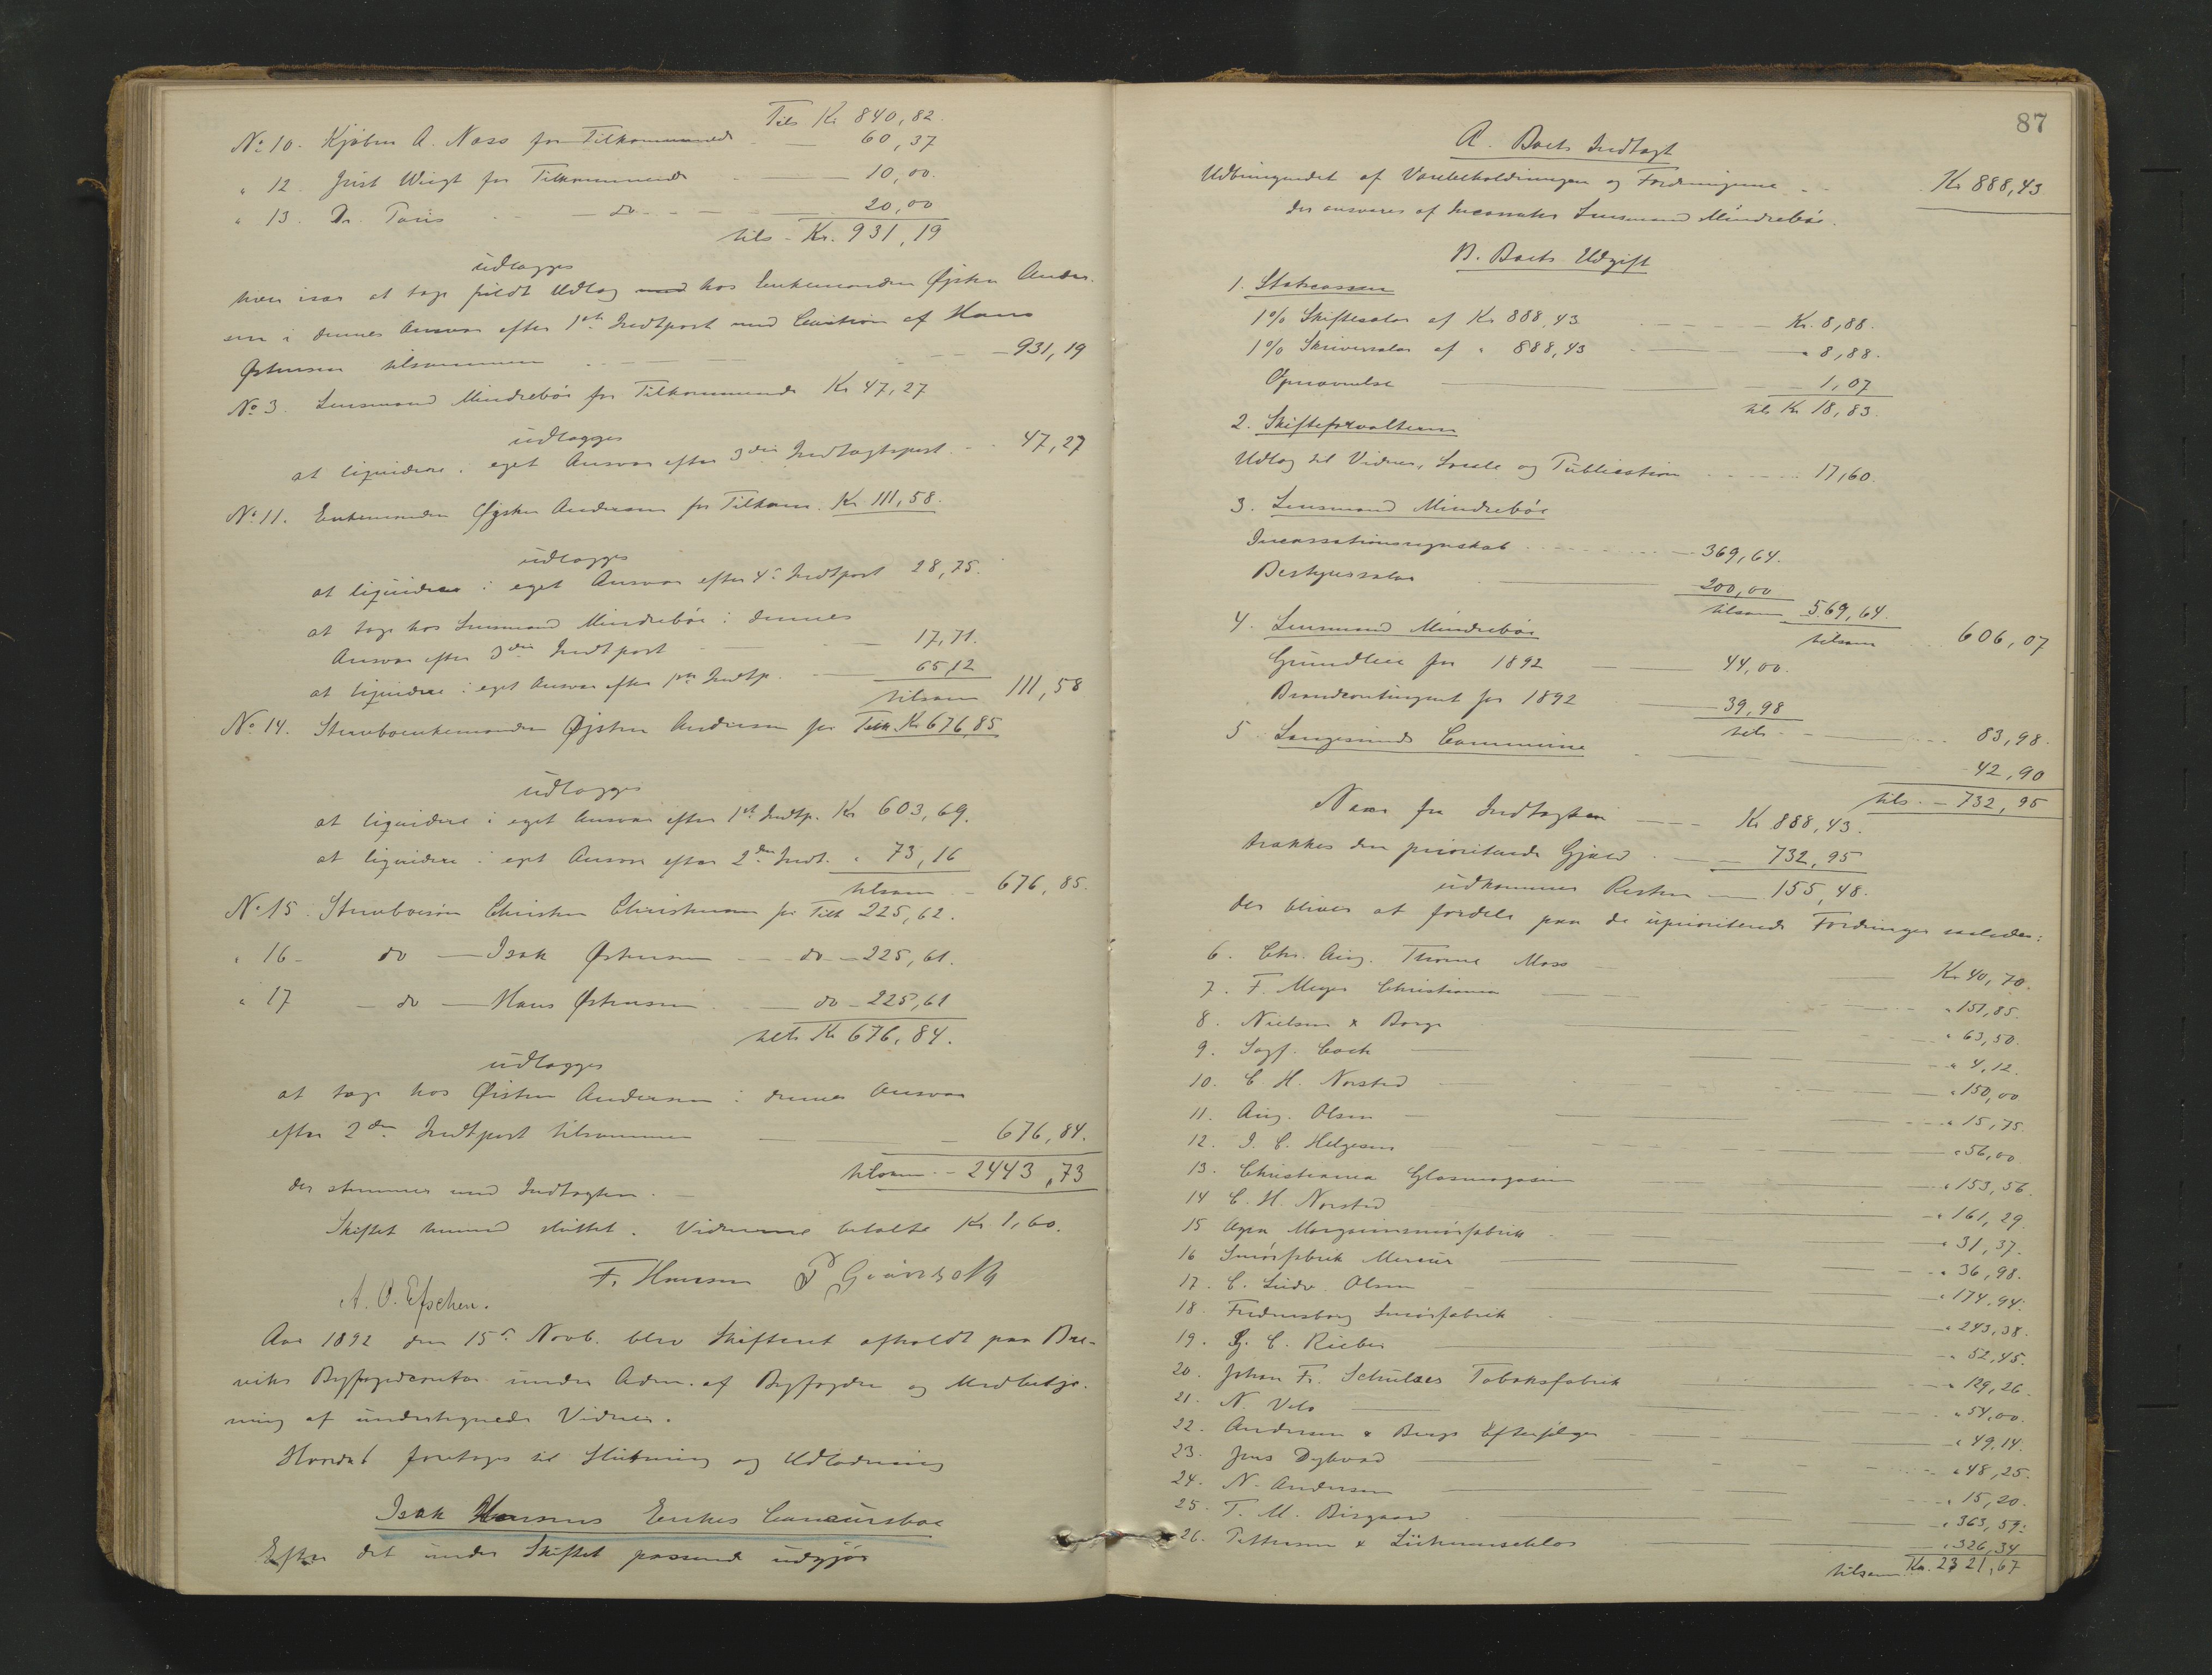 Tils Kr 840,82.
No 10. Kjøbm A. Næss for Tilkommende - 60,37
" 12. Jnst Wiegt for Tilkommende - 10,00.
" 13. Dr. Paus - do - 20,00
tils - Kr. 931,19
udlægges
hver især at tage fuldt Udlæg med hos Enkemanden Øjsten Ander-
sen i dennes Ansvar efter 1ste Indtpost med Caution af Hans
Østensen tilsammen - 931,19
No 3. Lensmand Mindrebøe for Tilkommende Kr 47,27
udlægges
at liqvidere i eget Ansvar efter 3die Indtægtspost - 47,27
No 11. Enkemanden Øysten Andersen for Tilkom. Kr 111,58.
udlægges
at liqvidere i eget Ansvar efter 4de Indtpost 28,75.
at tage hos Lensmand Mindrebøe i dennes
Ansvar efter 3die Indtpost - 17,71.
at liqvidere i eget Ansvar efter 1ste Indtp. - 65,12
tilsam 111,58
No 14. Stervboenkemanden Øjsten Andersen for Tilk. Kr 676,85
udlægges
at liqvidere i eget Ansvar efter 1ste Indtp. Kr 603,69.
at liqvidere i eget Ansvar efter 2den Indt. " 73,16
tilsam - 676,85.
No 15. Stervboesøn Christen Christensen for Tilk 225,62.
" 16 - do - Isak Østensen - do - 225,61.
" 17 - do - Hans Østensen - do - 225,61
tils Kr 676,84.
udlægges
at tage hos Østen Andersen i dennes Ansvar
efter 2den Indtpost tilsammen - 676,84.
tilsam - 2443,73
der stemmer med Indtægten. -
Skiftet hermed sluttet. Vidnerne betalte Kr 1,60.
F. Hansen
A. O. Efschen.
Aar 1892 den 15de Novb. blev Skifteret afholdt paa Bre-
viks Byfogedcontor under Adm. af Byfogden og Medbetje-
ning af undertegnede Vidner.
Hvorda foretages til Slutning og Udlodning
Isak Hansens Enkes Concursboe
Efter det under Skiftet passerede udgjør
87
A. Boets Indtægt
Udbringendet af Varebeholdningen og Fordringerne - Kr 888,43
der ansvares af Incassator Lensmand Mindrebøe.
B. Boets Udgift
1. Statscassen
1% Skiftesalær af Kr 888,43 - Kr. 8,88.
1% Skriversalær af " 888,43 - " 8,88.
Opnævnelse - 1,07
tils Kr 18,83.
2. Skifteforvalteren
Udlæg til Vidner, Locale og Publication - 17,60.
3. Lensmand Mindrebøe
Incassationsregnskab - 369,64.
Bestyrersalær - 200,00
tilsam 569,64.
tilsam - 606,07
4. Lensmand Mindrebøe
Grundleie for 1892 - 44,00.
Brandcontingent for 1892 - 39,98
tils - 83,98.
5 Langesunds Commune - 42,90
tils. - 732,95
Naar fra Indtægten - Kr 888,43.
trækkes den prioriterede Gjæld - 732,95
udkommer Resten - 155,48.
der bliver at fordele paa de uprioriterede Fordringer saaledes:
6. Chr. Aug. Thorne Moss - Kr 40,70.
7. F. Meyer Christiania - " 151,85.
8. Nielsen & Borge - " 63,50.
9. Sagf. Coch - " 4,12.
10. C. H. Norsted - " 150,00
11. Aug. Olsen - " 15,75.
12. J. C. Helgesen - " 56,00
13. Christiania Glasmagasin - " 153,56.
14 C. H. Norsted - " 161,29
15 Agra Margarinsmørfabrik - " 31,37.
16 Smørfabrik Mercur - " 36,98.
17. C. Ludv. Olsen - " 174,94.
18. Fredensborg Smørfabrik - " 243,38.
19. G. C. Rieber - " 52,45.
20. Johan Fr. Schultzes Tobaksfabrik - " 129,26.
21. N. Vels - " 54,00.
22. Andersen & Bergs Efterfølger - " 49,14.
23. Jens Dybvad - " 48,25.
24. N. Andersen - " 15,20.
25. T. M. Bisgaard - " 363,59.
26. Pettersen & - " 326,34
tilsam Kr. 2321,67